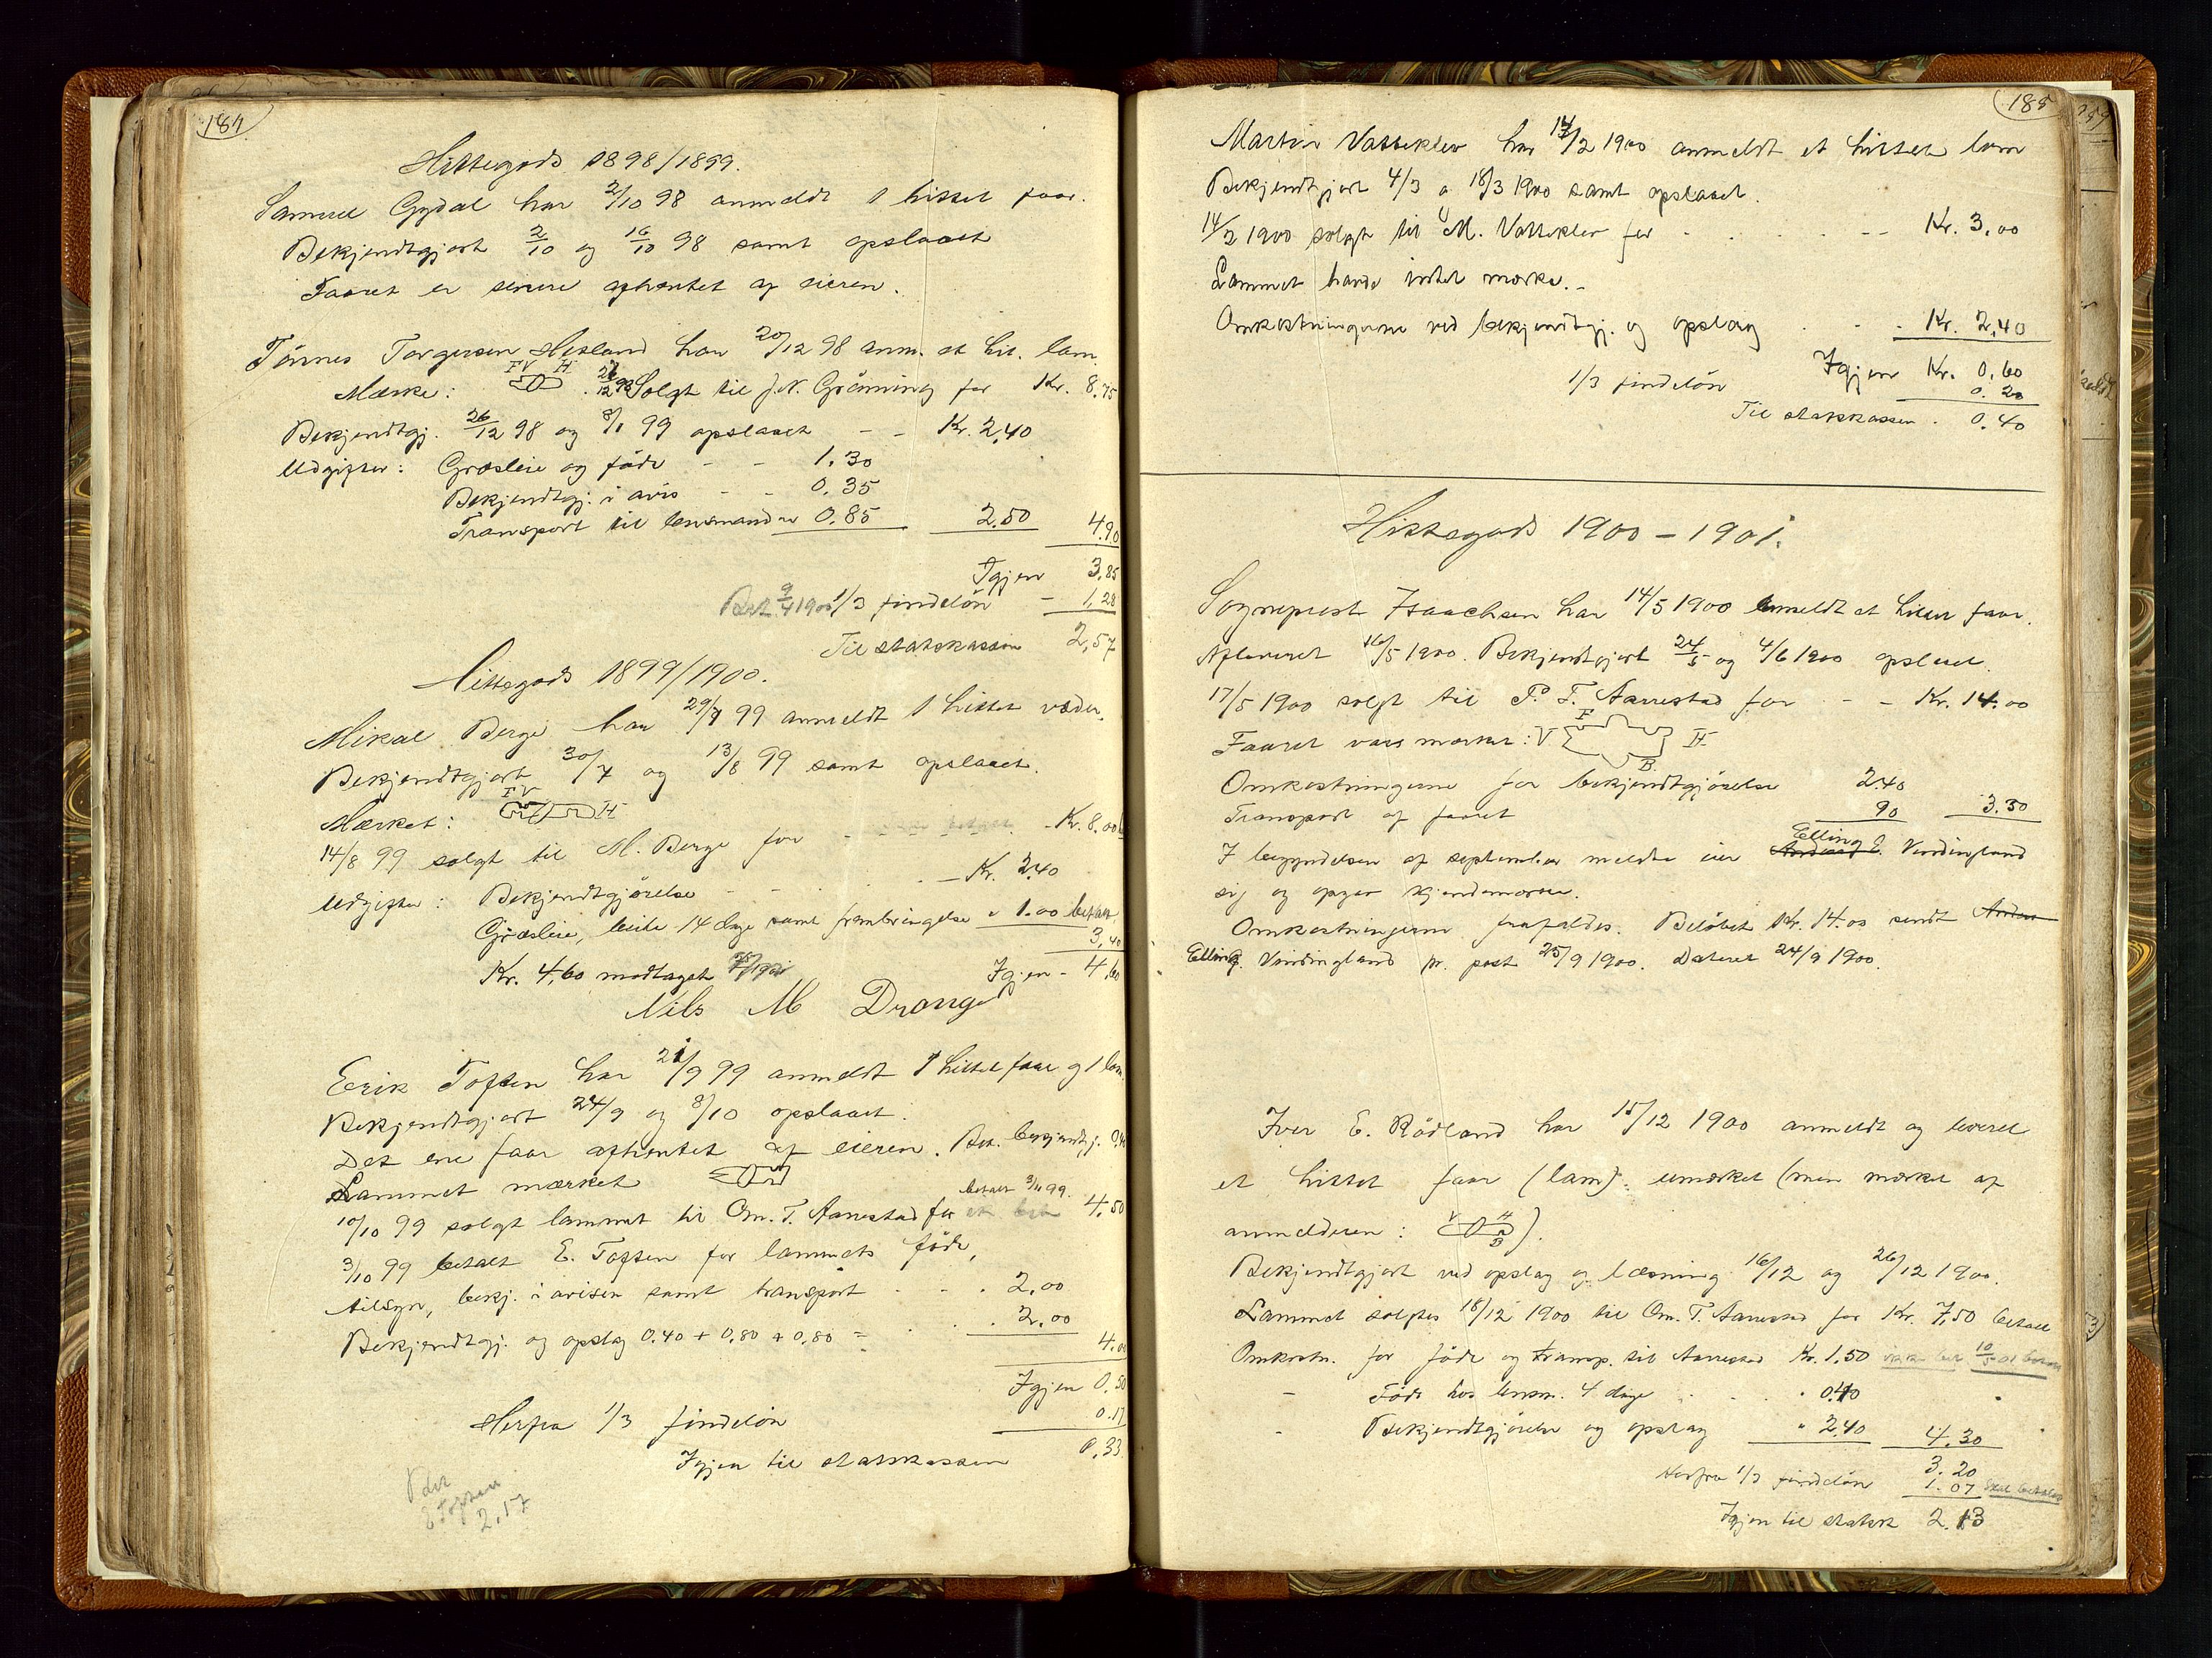 184
Hittegods 1898/1899.
Samuel Gydal har 2/10 98 anmeldt 1 hittet faar.
Bekjendtgjort 2/10 og 16/10 98 samt opslaaet
Faaret er senere afhentet af eieren.
Tönnes Torgersen Hetland har 20/12 98 anm. et hit. lam.
Mærke: F V H . 21/12 98 Solgt til J. N. Gröning for Kr. 8,75
Bekjendtgj. 26/12 98 og 8/1 99 opslaaet - - Kr. 2,40
Udgifter: Græsleie og föde - - 1.30
Bekjendtgj. i avis - - 0.35
Transport til lensmanden 0.85 2,50 4.90
Igjen 3,85
Bet 9/4 1900 1/3 findelön - 1,28
Til statskassen 2,57
Hittegods 1899/1900.
Mikal Berge har 29/7 99 anmeldt 1 hittet væder.
Bekjendtgjort 30/7 og 13/8 99 samt opslaaet.
Mærket: F V H
14/8 99 solgt til M. Berge for - Kr. 8,00
Udgifter: Bekjendtgjörelse - - - Kr. 2,40
Græsleie, beite 14 dage samt frembringelse " 1.00 betalt
3,40
Kr. 4,60 modtaget Igjen - 4,60
Nils M Drange
Erik Toften har 21/9 99 anmeldt 1 hittet faar og 1 lam.
Bekjendtgjort 24/9 og 8/10 opslaaet.
Det ene faar afhentet af eieren. Bet. bekjendtgj.
Lammet mærket
betalt 3/10 99.
10/10 99 solgt lammet til Om. T. Aarrestad for 4.50
3/10 99 betalt E. Toften for lammets föde,
tilsyn, bekj. i avisen samt transport - - . 2,00
Bekjendtgj. og opslag 0.40 + 0.80 + 0.80 = . . 2,00 4.00
Igjen 0.50
Herfra 1/3 findelön 0.17
Igjen til statskassen 0.33
E Toften
2.17
185
Martin Vatteklev har 14/2 1900 anmeldt et hittet lam
Bekjendtgjort 4/3 o 18/3 1900 samt opslaaet.
14/2 1900 solgt til M. Vatteklev for - - - Kr. 3,00
Lammet havde intet mærke.-
Omkostningerne ved bekjendtgj. og opslag - - Kr. 2,40
Igjen Kr. 0,60
1/3 findelön 0.20
Til statskassen . 0.40
Hittegods 1900 - 1901.
Sogneprest Isaachsen har 14/5 1900 anmeldt et hittet faar.
Afleveret 16/5 1900. Bekjendtgjort 24/5 og 4/6 1900 opslaaet.
17/5 1900 solgt til P. T. Aarrestad for - - Kr. 14.00
Faaret vars mærket: V F H B.
Omkostningerne for bekjendtgjörelse 2.40
Transport af faaret 90 3.30
I begyndelsen af september meldte eier Elling E. Vindingland
sig og opgav kjendemærke.
Omkostningerne frafaldes. Belöbet Kr. 14.00 sendt
Elling Vindingland pr. post 25/9 1900. Dateret 24/9 1900.
Iver E. Rödland har 15/12 1900 anmeldt og leveret
et hittet faar (lam); umærket (men mærket af
anmelderen: V H B).
Bekjendtgjort ved opslag og læsning 16/12 og 26/12 1900.
Lammet solgtes 18/12 1900 til Om. T. Aarrestad for Kr. 7,50 betalt
Omkostn. for föde og transp. til Aarrestad Kr. 1.50
- Föde hos lensm. 4 dage . . . 0.40
- Bekjendtgjörelse og opslag " 2,40 4.30
3.20
Herfra 1/3 findelön 1.07 skal betales
Igjen til statsk 2.13